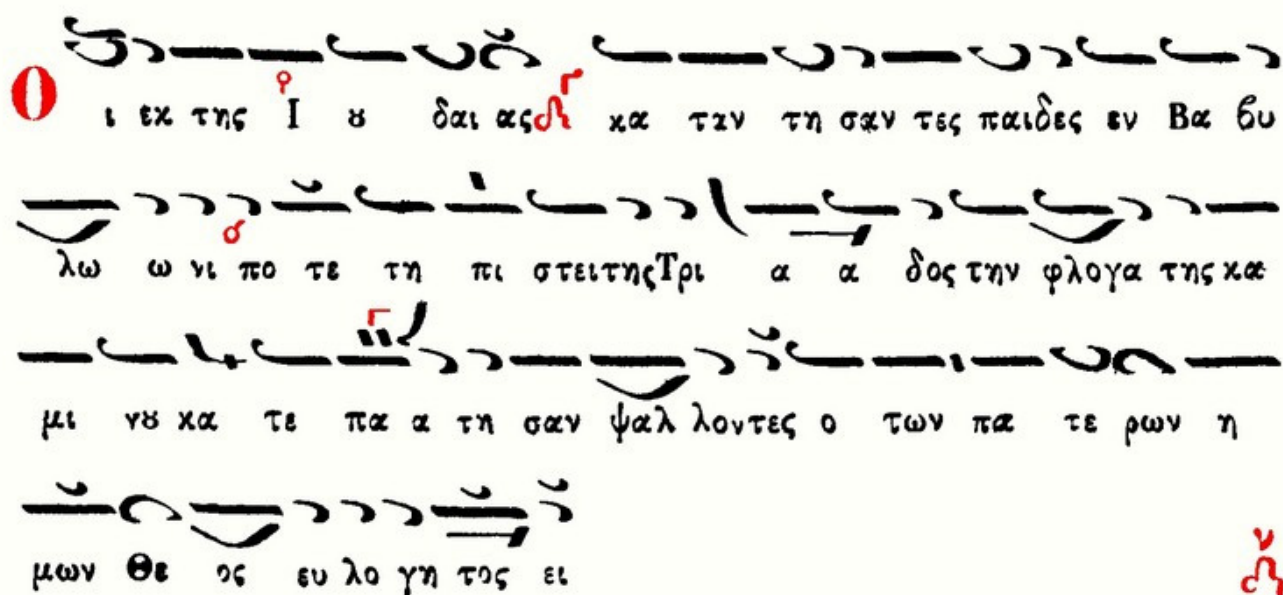 Ο ι εκ της Ι ȣ δαι ας κα ταν τη σαν τες παιδες εν Βα βυ
λω ω νι πο τε τη πι στει της Τρι α α δος την φλογα της κα
μι νȣ κα τε πα α τη σαν ψαλ λοντες ο των πα τε ρων η
μων Θε ος ευ λο γη τος ει